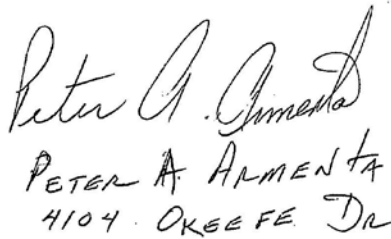 Peter A. Armenta
PETER A ARMENTA
4104 OKEEFE DR